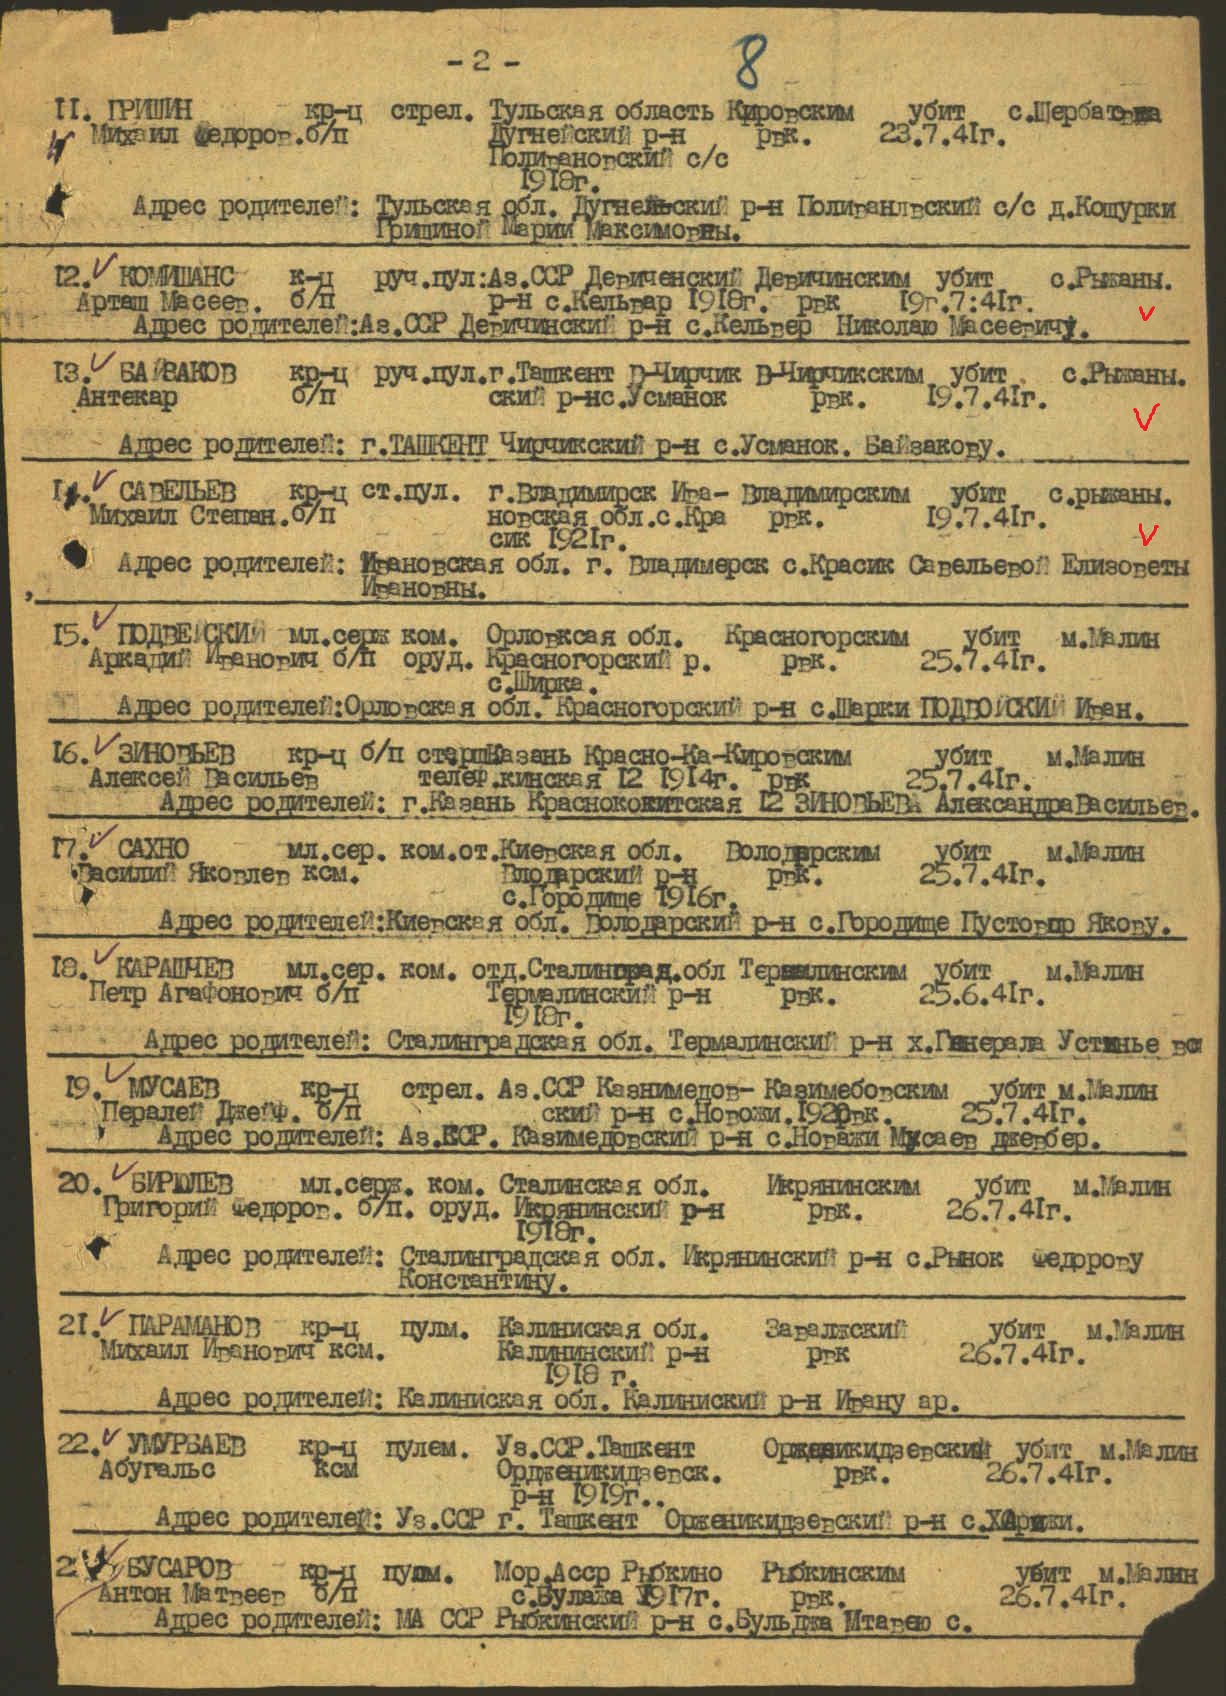 - 2 -
8
11. ГРИШИН кр-ц стрел. Тульская область Кировским убит с.Щербатовка
Михаил Федоров. б/п Дугнейский р-н рвк. 23.7.41г.
Поливановский с/с
1918г.
Адрес родителей: Тульская обл. Дугнейский р-н Поливанлвский с/с д.Кощурки
Гришиной Марии Максимовны.
12. КОМИШАНС к-ц руч.пул: Аз.ССР Девиченский Девичинским убит с.Рыжаны.
Арташ Масеев. б/п р-н с.Кельвар 1918г. рвк 19г.7:41г.
Адрес родителей: Аз.ССР Девичинский р-н с.Кельвер Николаю Масеевичу.
13. БАЙЗАКОВ кр-ц руч.пул. г.Ташкент В-Чирчик В-Чирчикским убит с.Рыжаны.
Антекар б/п ский р-нс.Усманок рвк. 19.7.41г.
Адрес родителей: г.ТАШКЕНТ Чирчикский р-н с.Усманок. Байзакову.
14. САВЕЛЬЕВ кр-ц ст.пул. г.Владимирск Ива- Владимирским убит с.рыжаны.
Михаил Степан. б/п новская обл.с.Кра рвк. 19.7.41г.
сик 1921г.
Адрес родителей: Ивановская обл. г. Владимерск с.Красик Савельевой Елизоветы
Ивановны.
15. ПОДВЕЙСКИЙ мл.серж ком. Орловксая обл. Красногорским убит м.Малин
Аркадий Иванович б/п оруд. Красногорский р. рвк. 25.7.41г.
с.Ширка.
Адрес родителей: Орловская обл. Красногорский р-н с.Шарки ПОДВОЙСКИЙ Иван.
16. ЗИНОВЬЕВ кр-ц б/п старш Казань Красно-Ка-Кировским убит м.Малин
Алексей Васильев телеф. кинская 12 1914г. рвк 25.7.41г.
Адрес родителей: г.Казань Краснококитская 12 ЗИНОВЬЕВА Александра Васильев.
17. САХНО мл.сер. ком.от. Киевская обл. Володарским убит м.Малин
Василий Яковлев ксм. Влодарский р-н рвк. 25.7.41г.
с.Городище 1916г.
Адрес родителей: Киевская обл. Володарский р-н с.Городище Пустовар Якову.
18. КАРАШЧЕВ мл.сер. ком. отд. Сталинград.обл Термалинским убит м.Малин
Петр Агафонович б/п Термалинский р-н рвк. 25.6.41г.
1918г.
Адрес родителей: Сталинградская обл. Термалинский р-н х.Генерала Устинье
19. МУСАЕВ кр-ц стрел. Аз.ССР Казнимедов- Казимебовским убит м.Малин
Пералей Джейф. б/п ский р-н с.Новожи.1920 рвк. 25.7.41г.
Адрес родителей: Аз.ССР. Казимедовский р-н с.Новажи Мусаев джевбер.
20. БИРЮЛЕВ мл.серж. ком. Сталинская обл. Икрянинским убит м.Малин
Григорий Федоров. б/п. оруд. Икрянинский р-н рвк. 26.7.41г.
1918г.
Адрес родителей: Сталинградская обл. Икрянинский р-н с.Рынок Федорову
Константину.
21. ПАРАМАНОВ кр-ц пулм. Калиниская обл. Заволжский убит м.Малин
Михаил Иванович ксм. Калининский р-н рвк 26.7.41г.
1918 г.
Адрес родителей: Калиниская обл. Калиниский р-н Ивану ар.
22. УМУРБАЕВ кр-ц пулем. Уз.ССР.Ташкент Орженикидзевский убит м.Малин
Абугальс ксм Ордженикидзевск. рвк. 26.7.41г.
р-н 1919г..
Адрес родителей: Уз.ССР г. Ташкент Орженикидзевский р-н
2 БУСАРОВ кр-ц пулм. Мор.Асср Рыбкино Рыбкинским убит м.Малин
Антон Матвеев б/п с.Булажа 1917г. рвк. 26.7.41г.
Адрес родителей: МА ССР Рыбкинский р-н с.Бульджа Мтавею с.